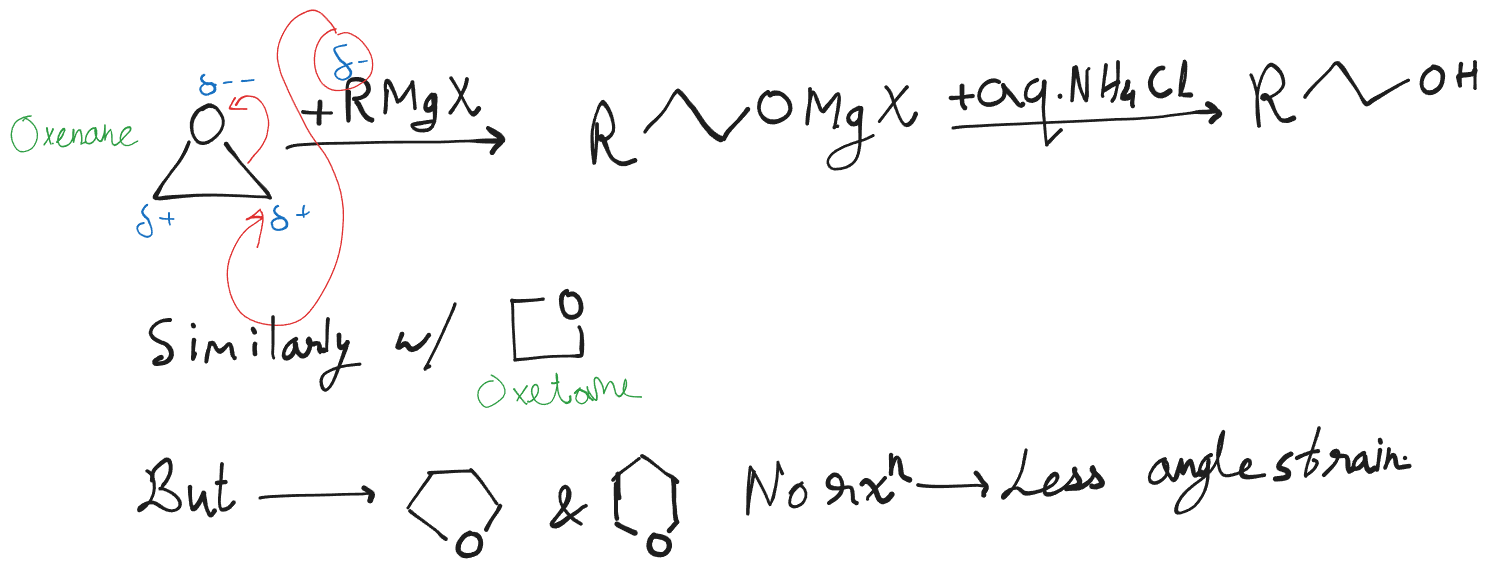 Oxenane δ-- O δ+ δ+ δ- + RMgX R OMgX + aq. NH4Cl R OH
Similarly w/ O
Oxetane
But O & O No rxn Less angle strain.